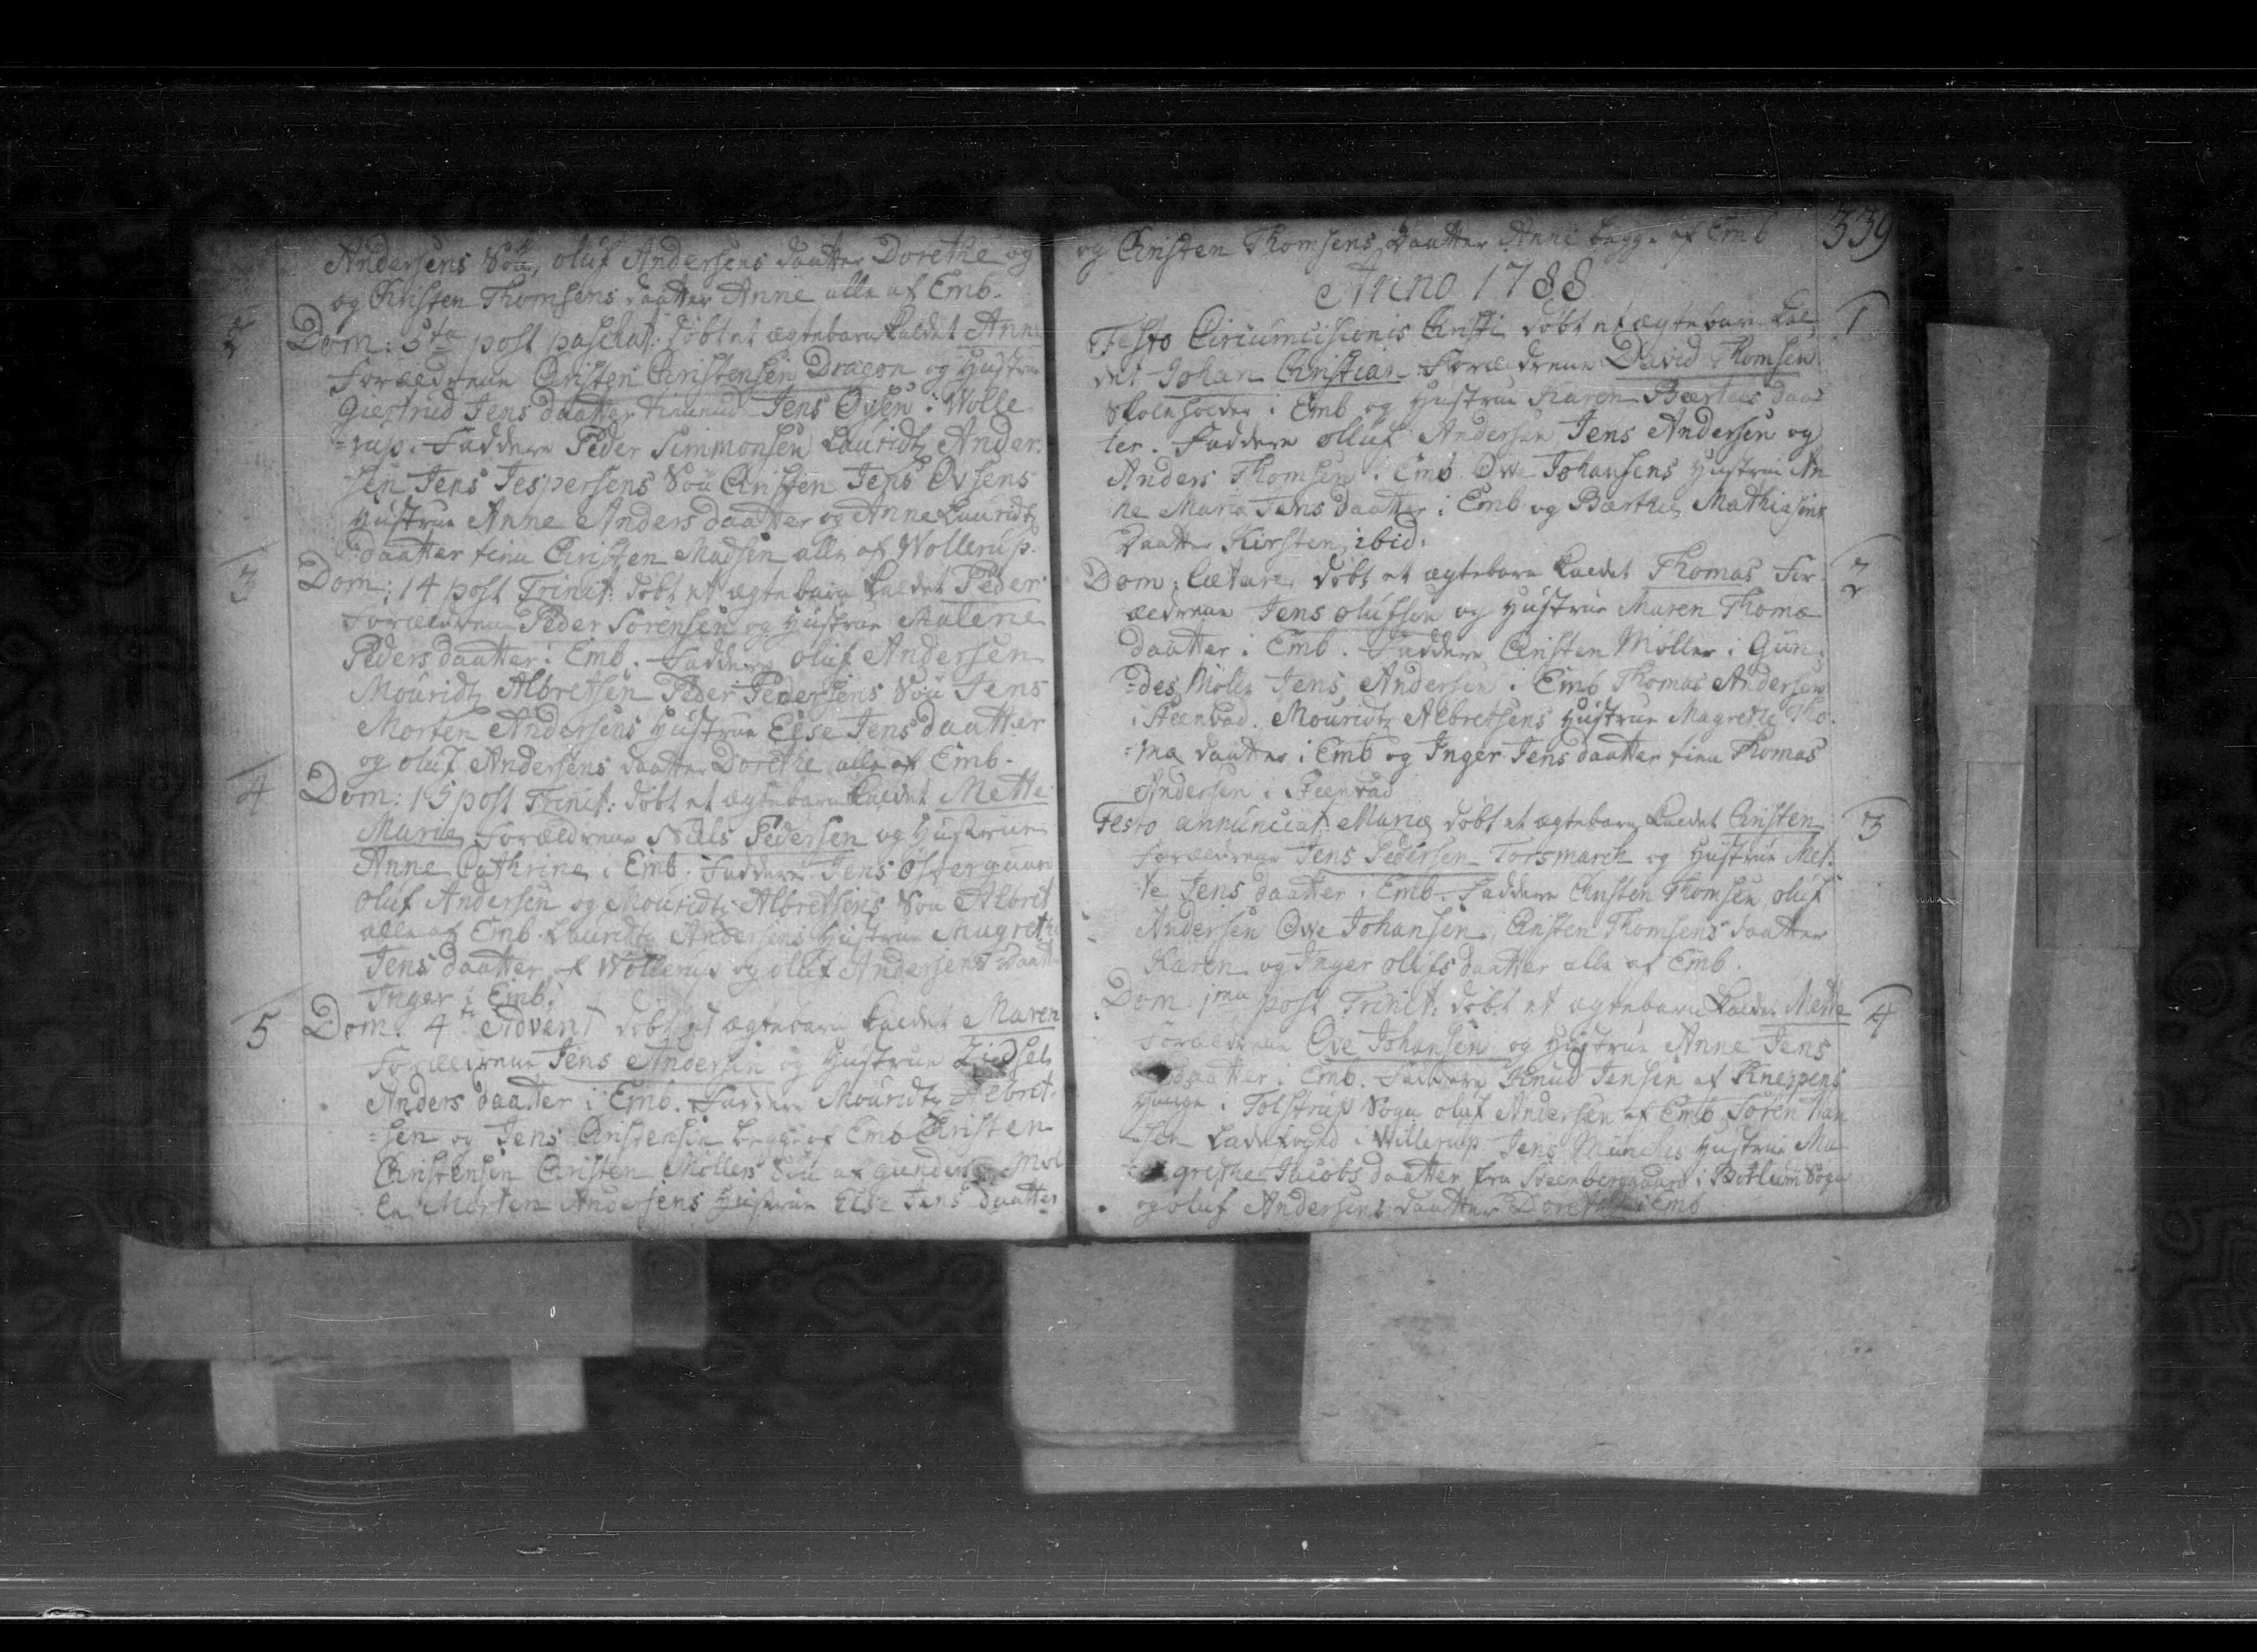 Andersens Søn, oluf Andersens daatter Dorethe og
og Christen Thomsens daatter Anne alle af Emb.
2 Dom: 5ta post paschat: døbt et ægtebarn kaldet Anne
Forældrene Christen Christensen Dracon og Hustrue
Giertrud Jens daatter tienende Jens Øvsen i Wolle
=rup. Faddere Peder Simmonsen Lauridtz Ander-
sen Jens Jespersens Søn Christen Jens Øvsens
Hustrue Anne Anders daatter og Anne Lauridtz
daatter tien: Christen Madsen alle af Wollerup.
3 Dom: 14 post Trinit: døbt et ægtebarn kaldet Peder
Forældrene Peder Sørensen og Hustrue Malene
Peders daatter i Emb. Faddere oluf Andersen
Mouridtz Albretsen Peder Pedersens Søn Jens
Morten Andersens Hustrue Else Jens daatter
og oluf Andersens daatter Dorethe alle af Emb.
4 Dom: 15 post Trinit: døbt et ægtebarn kaldet Mette
Marie Forældrene Niels Pedersen og Hustrue
Anne Cathrine i Emb. Faddere Jens Østergaard
oluf Andersen og Mouridtz Albretsens Søn Albret
alle af Emb. Lauridtz Andersens Hustrue Magrethe
Jens daatter af Wollerup og oluf Andersens Daatter
Inger i Emb.
5 Dom. 4te Advent døbt et ægtebarn kaldet Maren
Forældrene Jens Andersen og Hustrue Zidsel
Anders daatter i Emb. Faddere Mouridtz Albret-
=sen og Jens Christensen begge af Emb Christen
Christensen Christen Møllers Søn af Gundes Møl
le Morten Andersens Hustrue Else Jens daatter
339
og Christen Thomsens Daatter Anne begge af Emb
Anno 1788
Festo Circumcisionis Christi døbt et ægtebarn kal 1
det Johan Christian Forældrene David Thomsen
Skoleholder i Emb og Hustrue Karen Bærtels daat
ter. Faddere olluf Andersen Jens Andersen og
Anders Thomsen i Emb Ove Johansens Hustrue An
ne Maria Jens daatter i Emb og Bærthel Mathiasens
Daatter Kirsten ibid.
Dom: lætare døbt et ægtebarn kaldet Thomas For 2
ældrene Jens olufsen og Hustrue Maren Thomæ
daatter i Emb. Faddere Christen Møller i Gun:
=des Mølle Jens Andersen i Emb Thomas Andersen
i Steenbad. Mouridtz Albretsens Hustrue Magrethe Tho:
=mæ daatter i Emb og Inger Jens daatter tien: Thomas
Andersen i Steenbad
Festo annunciat: Mariæ døbt et ægtebarn kaldet Christen 3
Forældrene Jens Pedersen Torsmarck og Hustrue Met:
te Jens daatter i Emb. Faddere Christen Thomsen oluf
Andersen Ove Johansen, Christen Thomsens daatter
Karen og Inger olufs daatter alle af Emb.
Dom: 1ma post Trinit: døbt et ægtebarn kaldet Mette 4
Forældrene Ove Johansen og Hustrue Anne Jens
daatter i Emb. Faddere Knud Jensen af Kneppens
Hauge i Tolstrup Sogn oluf Andersen af Emb Søren Han
sen Ladefoged i Willerup Jens Munches Hustrue Ma
grethe Jacobs daatter fra Steenbergaard i Botlum Sogn
og oluf Andersens daatter Dorethe i Emb